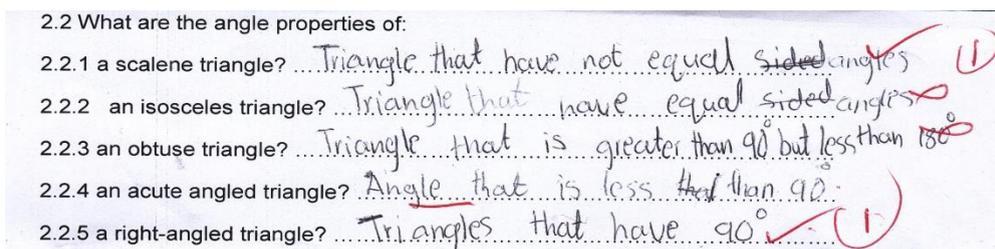 2.2 What are the angle properties of:
2.2.1 a scalene triangle? ....Triangle that have not equal sided angles ①
2.2.2 an isosceles triangle? ..Triangle that have equal sided angles
2.2.3 an obtuse triangle? ....Triangle that is greater than 90° but less than 180°
2.2.4 an acute angled triangle? Angle that is less that than 90°
2.2.5 a right-angled triangle? ....Triangles that have 90° ①